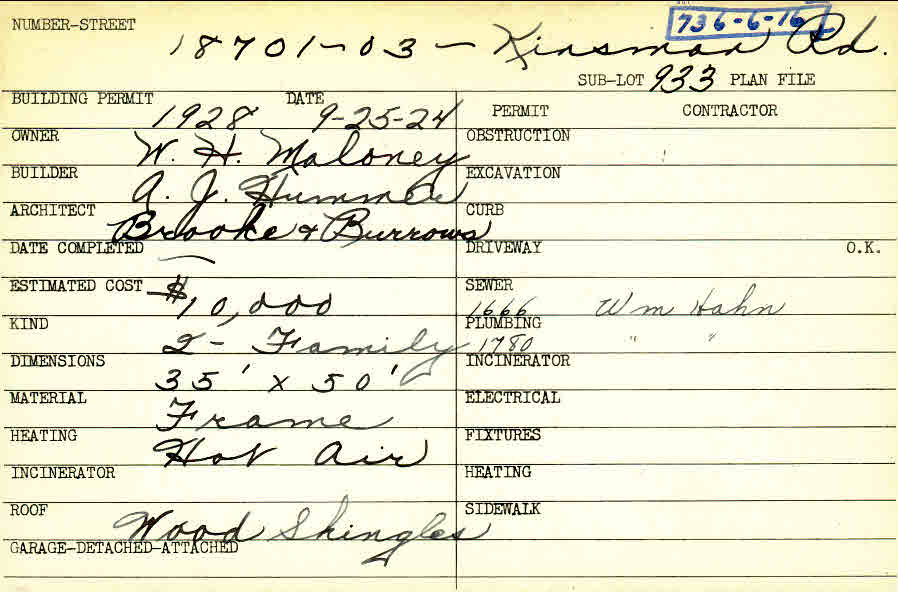 736-6-16
NUMBER-STREET
18701-03- Kinsman Rd.
SUB-LOT 933 PLAN FILE
BUILDING PERMIT 1928 DATE 9-25-24
PERMIT CONTRACTOR
OWNER W. H. Maloney
OBSTRUCTION
BUILDER A. J. Hummel
EXCAVATION
ARCHITECT Brooke & Burrows
CURB
DATE COMPLETED —
DRIVEWAY O.K.
ESTIMATED COST $10,000
SEWER 1666 Wm Hahn
KIND 2- Family
PLUMBING 1780 " "
DIMENSIONS 35' x 50'
INCINERATOR
MATERIAL Frame
ELECTRICAL
HEATING Hot Air
FIXTURES
INCINERATOR
HEATING
ROOF Wood Shingles
SIDEWALK
GARAGE-DETACHED-ATTACHED